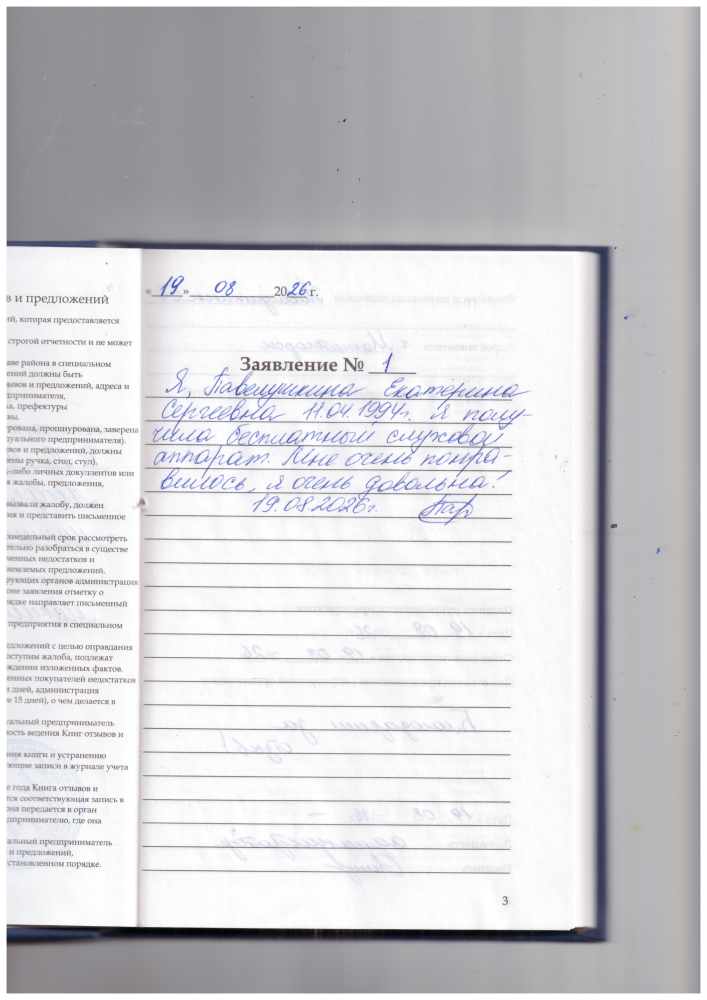 в и предложений
ий, которая предоставляется
строгой отчетности и не может
аве района в специальном
ений должны быть
зывов и предложений, адреса и
едпринимателя,
ва, префектуры
вы.
ерована, прошнурована, заверена
дуального предпринимателя).
ывов и предложений, должны
лены ручка, стол, стул).
-либо личных документов или
я жалобы, предложения,
вызвали жалобу, должен
ия и представить письменное
хнедельный срок рассмотреть
тельно разобраться в существе
меченных недостатков и
иемлемых предложений.
рующих органов администрация
роне заявления отметку о
рядке направляет письменный
предприятия в специальном
едложений с целью оправдания
поступим жалоба, подлежат
ждении изложенных фактов.
ченных покупателей недостатков
и дней, администрация
е 15 дней), о чем делается в
уальный предприниматель
ность ведения Книг отзывов и
ения книги и устранению
ующие записи в журнале учета
е года Книга отзывов и
тся соответствующая запись в
она передается в орган
дпринимателю, где она
альный предприниматель
и предложений,
становленном порядке.
«19» 08 2026 г.
Заявление № 1
Я, Павлушкина Екатерина
Сергеевна 11.04.1994г. Я полу-
чила бесплатный слуховой
аппарат. Мне очень понра-
вилось, я очень довольна!
19.08.2026г.
3